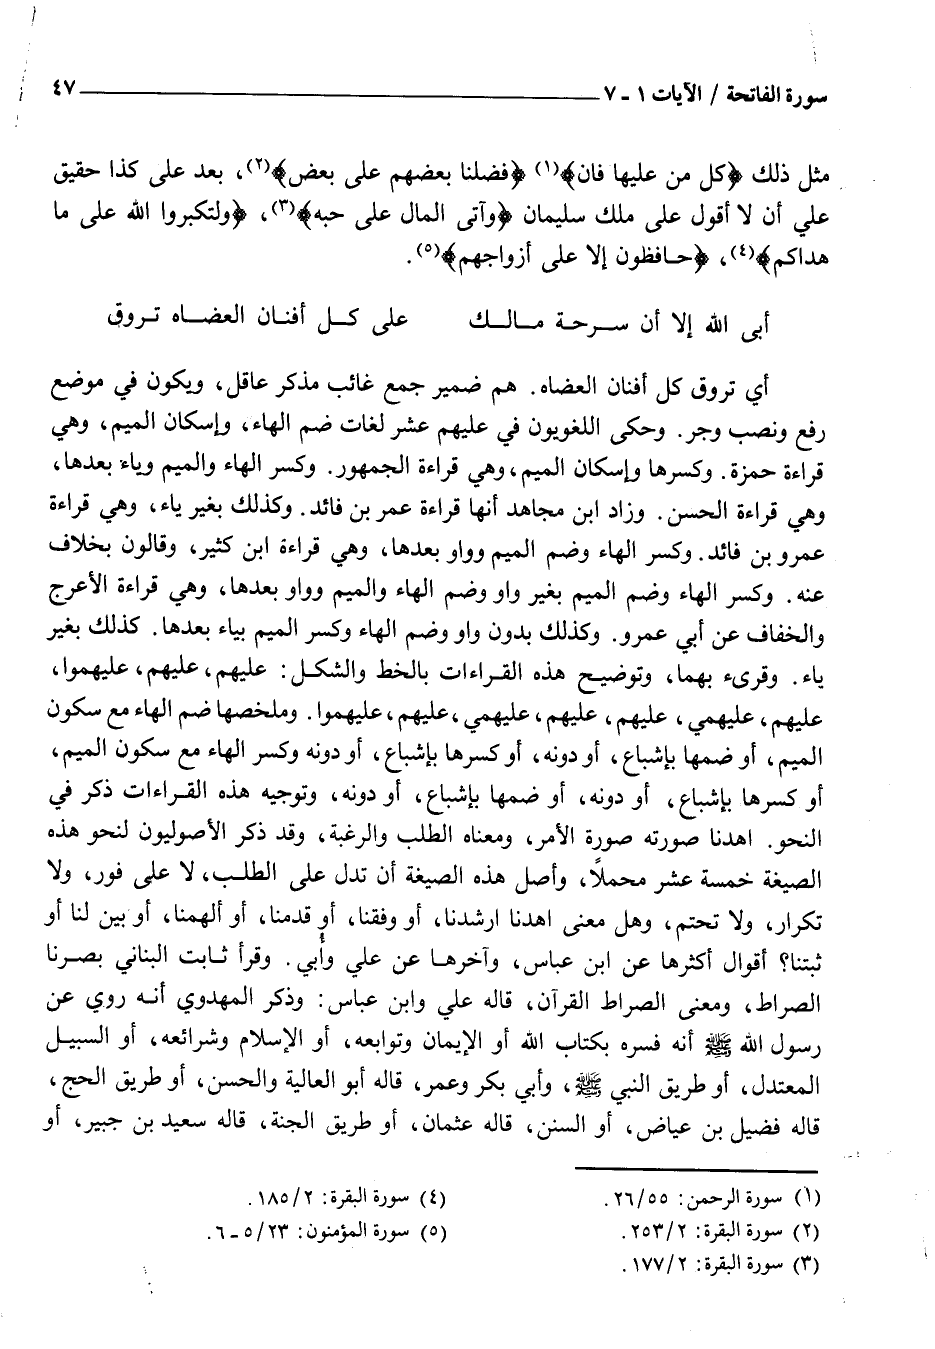 سورة الفاتحة / الآيات ١ ـ ٧ ٤٧
مثل ذلك ﴿كل من عليها فان﴾(١) ﴿فضلنا بعضهم على بعض﴾(٢)، بعد على كذا حقيق
علي أن لا أقول على ملك سليمان ﴿وآتى المال على حبه﴾(٣)، ﴿ولتكبروا الله على ما
هداكم﴾(٤)، ﴿حافظون إلا على أزواجهم﴾(٥).
أبى الله إلا أن سرحة مالك على كل أفنان العضاه تروق
أي تروق كل أفنان العضاه. هم ضمير جمع غائب مذكر عاقل، ويكون في موضع
رفع ونصب وجر. وحكى اللغويون في عليهم عشر لغات ضم الهاء، وإسكان الميم، وهي
قراءة حمزة. وكسرها وإسكان الميم، وهي قراءة الجمهور. وكسر الهاء والميم وياء بعدها،
وهي قراءة الحسن. وزاد ابن مجاهد أنها قراءة عمر بن فائد. وكذلك بغير ياء، وهي قراءة
عمرو بن فائد. وكسر الهاء وضم الميم وواو بعدها، وهي قراءة ابن كثير، وقالون بخلاف
عنه. وكسر الهاء وضم الميم بغير واو وضم الهاء والميم وواو بعدها، وهي قراءة الأعرج
والخفاف عن أبي عمرو. وكذلك بدون واو وضم الهاء وكسر الميم بياء بعدها. كذلك بغير
ياء. وقرىء بهما، وتوضيح هذه القراءات بالخط والشكل: عليهم، عليهم، عليهموا،
عليهم، عليهمي، عليهم، عليهم، عليهمي، عليهم، عليهموا. وملخصها ضم الهاء مع سكون
الميم، أو ضمها بإشباع، أو دونه، أو كسرها بإشباع، أو دونه وكسر الهاء مع سكون الميم،
أو كسرها بإشباع، أو دونه، أو ضمها بإشباع، أو دونه، وتوجيه هذه القراءات ذكر في
النحو. اهدنا صورته صورة الأمر، ومعناه الطلب والرغبة، وقد ذكر الأصوليون لنحو هذه
الصيغة خمسة عشر محملاً، وأصل هذه الصيغة أن تدل على الطلب، لا على فور، ولا
تكرار، ولا تحتم، وهل معنى اهدنا ارشدنا، أو وفقنا، أو قدمنا، أو ألهمنا، أو بين لنا أو
ثبتنا؟ أقوال أكثرها عن ابن عباس، وآخرها عن علي وأُبي. وقرأ ثابت البناني بصرنا
الصراط، ومعنى الصراط القرآن، قاله علي وابن عباس: وذكر المهدوي أنه روي عن
رسول الله ﷺ أنه فسره بكتاب الله أو الإيمان وتوابعه، أو الإسلام وشرائعه، أو السبيل
المعتدل، أو طريق النبي ﷺ، وأبي بكر وعمر، قاله أبو العالية والحسن، أو طريق الحج،
قاله فضيل بن عياض، أو السنن، قاله عثمان، أو طريق الجنة، قاله سعيد بن جبير، أو
(١) سورة الرحمن: ٢٦/٥٥.
(٢) سورة البقرة: ٢٥٣/٢.
(٣) سورة البقرة: ١٧٧/٢.
(٤) سورة البقرة: ١٨٥/٢.
(٥) سورة المؤمنون: ٥/٢٣ ـ ٦.